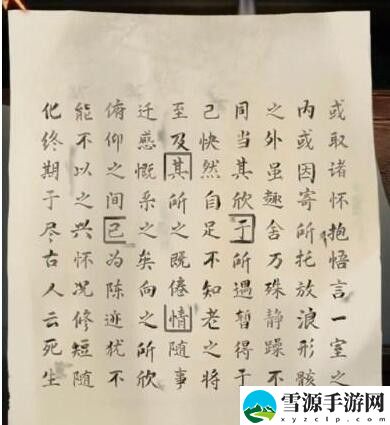 或取诸怀抱悟言一室之
内或因寄所托放浪形骸
之外虽趣舍万殊静躁不
同当其欣于所遇暂得于
己快然自足不知老之将
至及其所之既倦情随事
迁感慨系之矣向之所欣
俯仰之间已为陈迹犹不
能不以之兴怀况修短随
化终期于尽古人云死生
雪源手游网